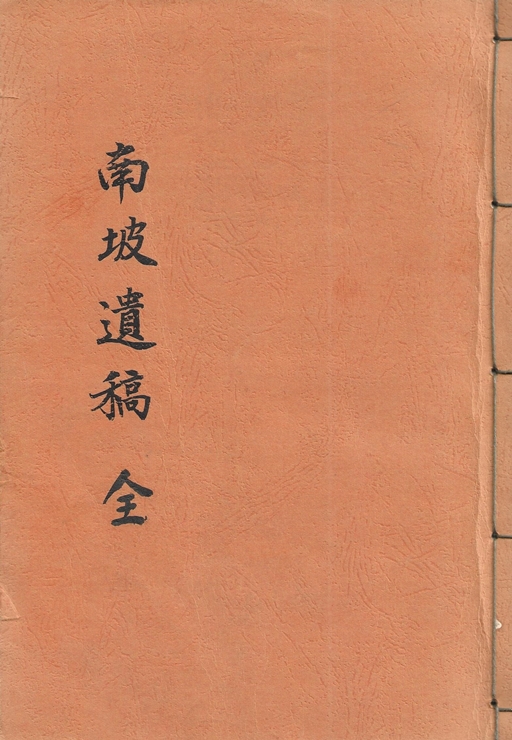 南坡遺稿 全